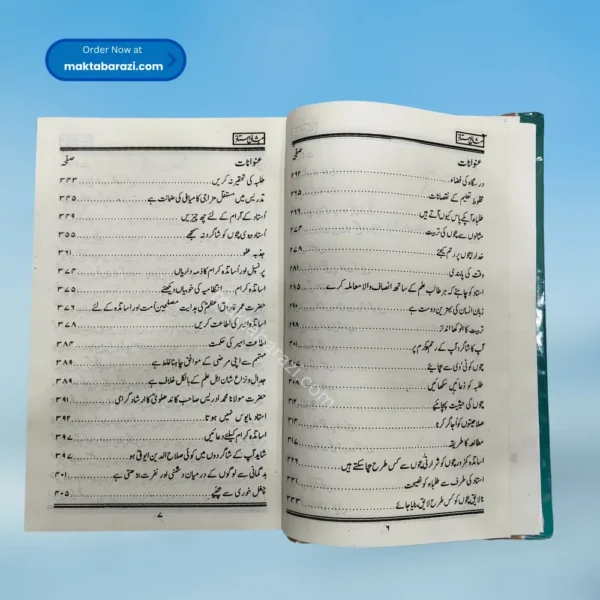 Order Now at
maktabarazi.com
مثالی استاد
عنوانات صفحہ
درسگاہ کی فضاء ۲۶۲
مخلوط تعلیم کے نقصانات ۲۶۵
طلباء آپکے پاس کیوں آتے ہیں
مثالوں سے بچوں کی تربیت ۲۷۴
خدارا بچوں پر رحم کیجئے ۲۷۸
وقت کی پابندی ۲۸۱
استاد کو چاہئے کہ ہر طالب علم کے ساتھ انصاف والا معاملہ کرے ۲۸۵
زبان انسان کی بہترین دوست ہے
تربیت کا انوکھا انداز ۲۹۸
آپ کا شاگرد آپ کے رحم و کرم پر ۳۰۱
بچوں کو ٹی وی سے بچائیے ۳۰۷
طلبہ کو دعائیں سکھائیں ۳۰۸
بچوں کی حیثیت پہچانئے
صلاحیتوں کو اجاگر کرنا
مطالعہ کا طریقہ ۳۱۷
اساتذہ کمزور بچوں کو شرارتی بچوں سے کس طرح بچا سکتے ہیں
استاد کی طرف سے طلباء کو نصیحت
نالائق بچوں کو کس طرح لائق بنایا جائے ۳۳۳
۶
مثالی استاد
عنوانات صفحہ
طلبہ کی تحقیر نہ کریں ۳۴۳
تدریس میں مستقل مزاجی کامیابی کی ضمانت ہے ۳۴۵
استاد کے آرام کے لئے چھ چیزیں ۳۴۹
استاد دوسری بچوں کو شاگرد نہ سمجھے ۳۵۵
جذبہ عفو ۳۶۱
پرنسپل اور اساتذہ کرام کا ذمہ داریاں ۳۷۴
اساتذہ کرام ... انتظامیہ کی خوبیاں دیکھئے ۳۷۵
حضرت عمر فاروق اعظمؓ کی ہدایت مصلحین امت اور اساتذہ کے لئے ۳۷۶
اساتذہ امیر کی اطاعت کریں ۳۷۸
اطاعت امیر کی حکمت ۳۸۴
مہتمم سے اپنی مرضی کے موافق چاہنا غلط ہے ۳۸۹
جدال و نزاع شان اہل علم کے بالکل خلاف ہے ۳۸۹
حضرت مولانا محمد ادریس صاحب کاندھلویؒ کا ارشاد گرامی
استاد مایوس نہیں ہوتا ۳۹۲
اساتذہ کرام کیلئے دعائیں ۳۹۷
شاید آپ کے شاگردوں میں کوئی صلاح الدین ایوبی ہو ۳۹۷
بدگمانی سے لوگوں کے درمیان دشمنی اور نفرت بڑھتی ہے ۴۰۱
چغل خوری سے بچئے ۴۰۵
۷
maktabarazi.com